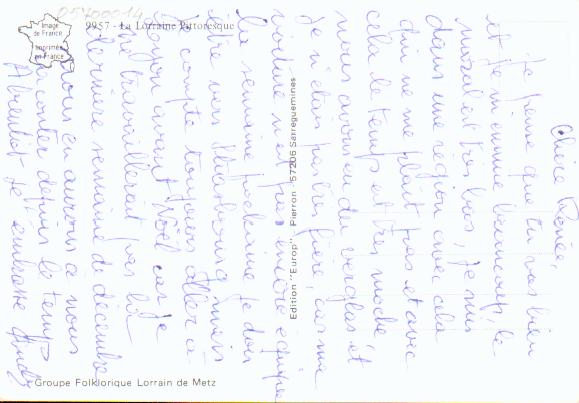 05700014
9957 - La Lorraine Pittoresque
Image
de France
Imprimée
en France
Edition "Europ" Pierron 57206 Sarreguemines
Groupe Folklorique Lorrain de Metz
Chère Renée,
Je pense que tu vas bien
et je m'ennuie beaucoup, le
moral est très bas, je suis
dans une région
qui ne me plaît pas et avec
cela le temps est très moche
nous avons eu du verglas et
je n'étais pas très fière, car ma
voiture n'est pas encore équipée
la semaine prochaine je dois
être vers Strasbourg mais
je compte toujours aller à
avant Noël car je
ne travaillerai pas la
dernière semaine de décembre
nous en aurons à nous
raconter depuis le temps
A bientôt je embrasse